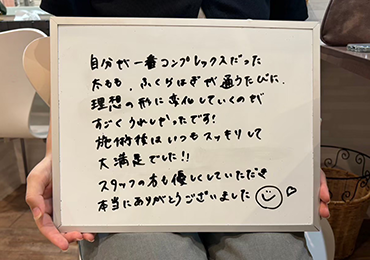 自分が一番コンプレックスだった
太もも、ふくらはぎが通うたびに、
理想の形に変化していくのが
すごくうれしかったです!
施術後はいつもスッキリして
大満足でした!!
スタッフの方も優しくしていただき
本当にありがとうございました